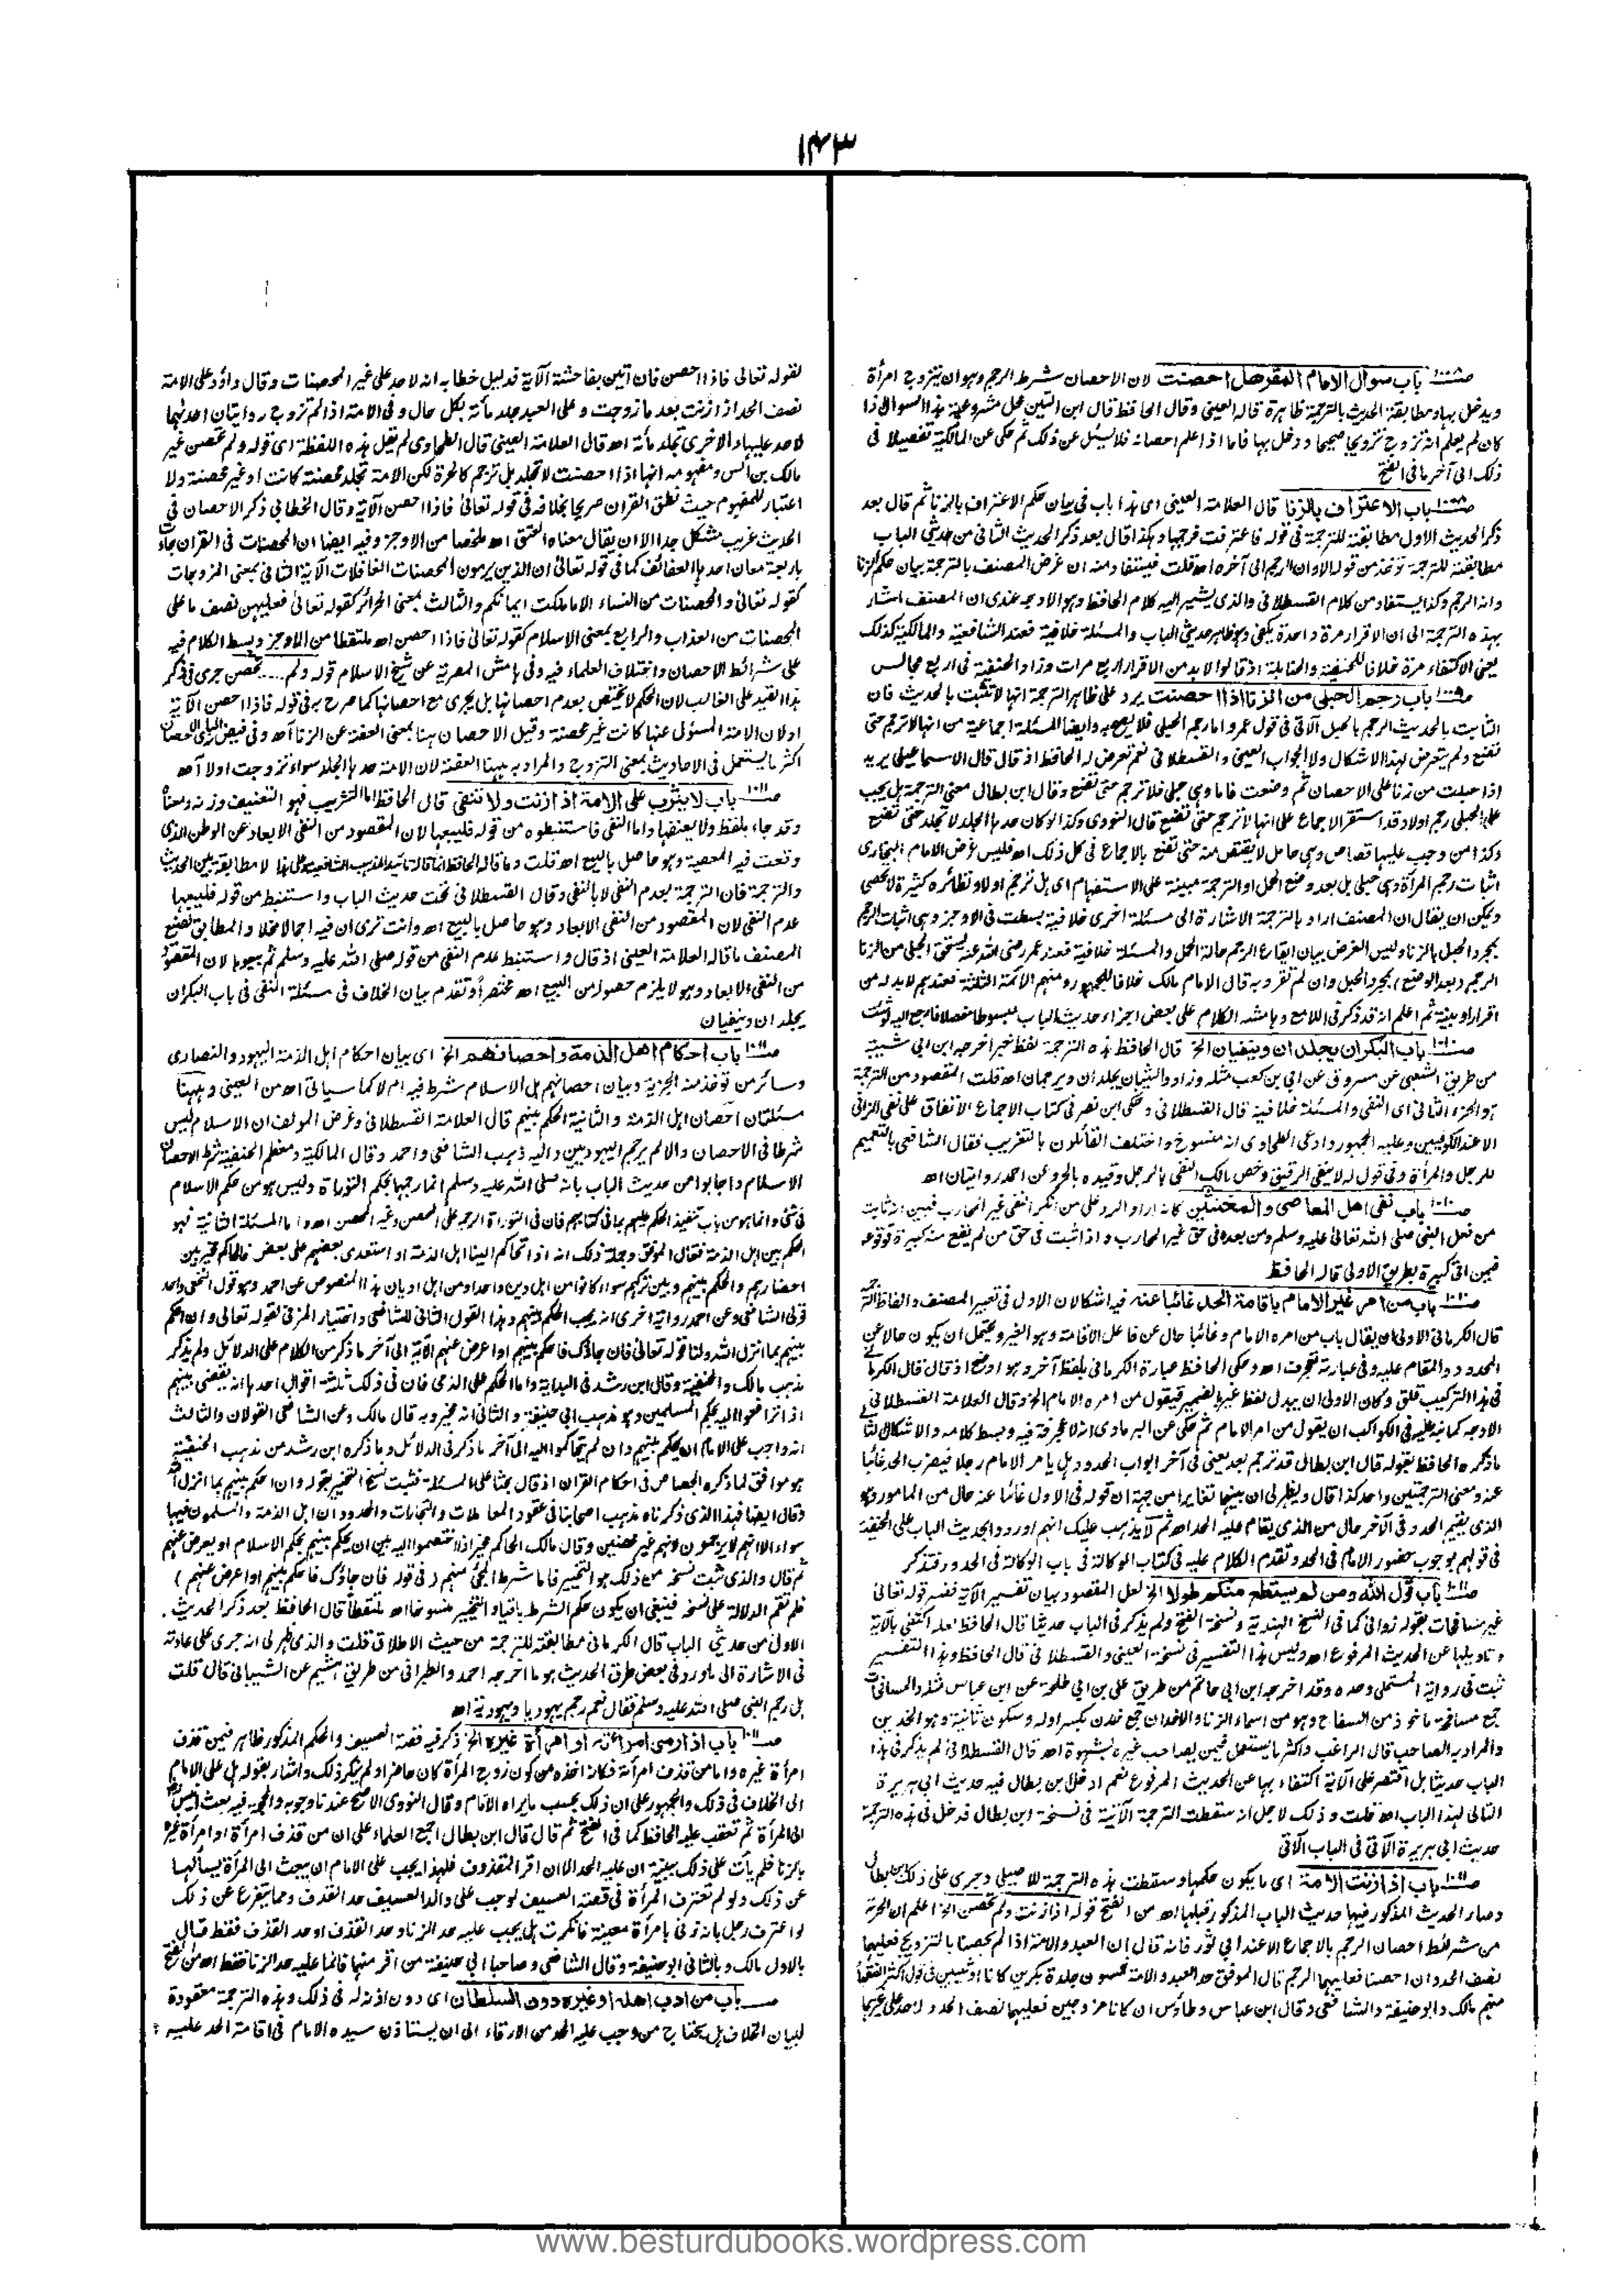 ١٤٣
باب سوال الامام المقر هل احصنت لان الاحصان شرط الرجم وهو ان يتزوج امرأة
ويدخل بها ومطابقة الحديث بالترجمة ظاهرة قاله العينى وقال الحافظ قال ابن التين محل مشروعية هذا السوال اذا
كان لم يعلم انه تزوج تزويجا صحيحا ودخل بها فاما اذا علم احصانه فلا يسئل عن ذلك ثم حكى عن المالكية تفصيلا فى
ذلك الى آخر ما فى الفتح
باب الاعتراف بالزنا قال العلامة العينى اى هذا باب فى بيان حكم الاعتراف بالزنا ثم قال بعد
ذكر الحديث الاول مطابقته للترجمة فى قوله فاعترفت فرجمها وهكذا قال بعد ذكر الحديث الثانى من حديثى الباب
مطابقته للترجمة تؤخذ من قوله الا وان الرجم الى آخره اه قلت فيستفاد منه ان غرض المصنف بالترجمة بيان حكم الزنا
وانه الرجم وكذا يستفاد من كلام القسطلانى والذى يشير اليه كلام الحافظ وهو الاوجه عندى ان المصنف اشار
بهذه الترجمة الى ان الاقرار مرة واحدة يكفى وهو ظاهر حديثى الباب والمسئلة خلافية فعند الشافعية والمالكية كذلك
يعنى الاكتفاء مرة خلافا للحنفية والحنابلة اذ قالوا لا بد من الاقرار اربع مرات وزاد الحنفية فى اربع مجالس
باب رجم الحبلى من الزنا اذا احصنت يرد على ظاهر الترجمة انها لا تثبت بالحديث فان
الثابت بالحديث الرجم بالحبل الآتى فى قول عمر واما رجم الحبلى فلا يصح وايضا المسئلة اجماعية من انها لا ترجم حتى
تضع ولم يتعرض لهذا الاشكال ولا الجواب العينى والقسطلانى نعم تعرض له الحافظ اذ قال قال الاسماعيلى يريد
اذا حبلت من زنا على الاحصان ثم وضعت فاما وهى حبلى فلا ترجم حتى تضع وقال ابن بطال معنى الترجمة هل يجب
على الحبلى رجم او لا وقد استقر الاجماع على انها لا ترجم حتى تضع قال النووى وكذا لو كان حدها الجلد لا تجلد حتى تضع
وكذا من وجب عليها قصاص وهى حامل لا يقتص منها حتى تضع بالاجماع فى كل ذلك اه فليس غرض الامام البخارى
اثبات رجم المرأة وهى حبلى بل بعد وضع الحمل او الترجمة مبينة على الاستفهام اى هل ترجم او لا ونظائره كثيرة لا تحصى
ويمكن ان يقال ان المصنف اراد بالترجمة الاشارة الى مسئلة اخرى خلافية بسطت فى الاوجز وهى اثبات الرجم
بمجرد الحبل بالزنا وليس الغرض بيان ايقاع الرجم حالة الحمل والمسئلة خلافية فعند عمر رضى الله عنه يستحق الحبلى من الزنا
الرجم (بعد الوضع) بمجرد الحبل وان لم تقر وبه قال الامام مالك خلافا للجمهور ومنهم الائمة الثلثة فعندهم لا بد له من
اقرار او بينة ثم اعلم انه قد ذكر فى اللامع وهامشه الكلام على بعض اجزاء حديث الباب مبسوطا مفصلا فارجع اليه لو شئت
باب البكران يجلدان وينفيان الخ قال الحافظ هذه الترجمة لفظ خبر اخرجه ابن ابى شيبة
من طريق الشعبى عن مسروق عن ابى بن كعب مثله وزاد والثيبان يجلدان ويرجمان اه قلت المقصود من الترجمة
هو الجزء الثانى اى النفى والمسئلة خلافية قال القسطلانى وحكى ابن نصر فى كتاب الاجماع الاتفاق على نفى الزانى
الا عند الكوفيين وعليه الجمهور وادعى الطحاوى انه منسوخ واختلف القائلون بالتغريب فقال الشافعى بالتعميم
للرجل والمرأة وفى قول له لا ينفى الرقيق وخص مالك النفى بالرجل وقيده بالحر وعن احمد روايتان اه
باب نفى اهل المعاصى والمخنثين كانه اراد الرد على من انكر النفى غير المحارب فبين انه ثابت
من فعل النبى صلى الله تعالى عليه وسلم ومن بعده فى حق غير المحارب واذا ثبت فى حق من لم يقع منه كبيرة فوقوعه
فيمن اتى كبيرة بطريق الاولى قاله الحافظ
باب من امر غير الامام باقامة الحد غائبا عنه فيه اشكالان الاول فى تعبير المصنف والفاظ الترجمة
قال الكرمانى الاولى ان يقال باب من امره الامام وغائبا حال عن فاعل الاقامة وهو الغير ويحتمل ان يكون حالا عن
المحدود والمقام عليه وفى عبارته تعجرف اه وحكى الحافظ عبارة الكرمانى بلفظ آخر وهو اوضح اذ قال قال الكرمانى
فى هذا التركيب قلق وكان الاولى ان يبدل لفظ غير بالضمير فيقول من امره الامام الخ وقال العلامة القسطلانى
الاوجه كما نبه عليه فى الكواكب ان يقول من امر الامام ثم حكى عن البرماوى انه لا عجرفة فيه وبسط كلامه والاشكال الثانى
ما ذكره الحافظ بقوله قال ابن بطال قد ترجم بعد يعنى فى آخر ابواب الحدود هل يامر الامام رجلا فيضرب الحد غائبا
عنه ومعنى الترجمتين واحد كذا قال ويظهر لى ان بينهما تغايرا من جهة ان قوله فى الاول غائبا عنه حال من المامور وهو
الذى يقيم الحد وفى الآخر حال من الذى يقام عليه الحد اه ثم لا يذهب عليك انهم اوردوا بحديث الباب على الحنفية
فى قولهم بوجوب حضور الامام فى الحد وتقدم الكلام عليه فى كتاب الوكالة فى باب الوكالة فى الحدود فتذكر
باب قول الله ومن لم يستطع منكم طولا الخ لعل المقصود بيان تفسير الآية ففسر قوله تعالى
غير مسافحات بقوله زوانى كما فى النسخ الهندية ونسخة الفتح ولم يذكر فى الباب حديثا قال الحافظ لعله اكتفى بالآية
وتاويلها عن الحديث المرفوع اه وليس هذا التفسير فى نسخة العينى والقسطلانى قال الحافظ وهذا التفسير
ثبت فى رواية المستملى وحده وقد اخرجه ابن ابى حاتم من طريق على بن ابى طلحة عن ابن عباس مثله والمسافحات
جمع مسافحة ماخوذ من السفاح وهو من اسماء الزنا والاخدان جمع خدن بكسر اوله وسكون ثانية وهو الخدين
والمراد به الصاحب قال الراغب واكثر ما يستعمل فيمن يصاحب غيره بشهوة اه قال القسطلانى لم يذكر فى هذا
الباب حديثا بل اقتصر على الآية اكتفاء بها عن الحديث المرفوع نعم ادخل ابن بطال فيه حديث ابى هريرة
التالى لهذا الباب اه قلت وذلك لاجل انه سقطت الترجمة الآتية فى نسخة ابن بطال فدخل فى هذه الترجمة
حديث ابى هريرة الآتى فى الباب الآتى
باب اذا زنت الامة اى ما يكون حكمها وسقطت هذه الترجمة للاصيلى وجرى على ذلك ابن بطال
وصار الحديث المذكور فيها حديث الباب المذكور قبلها اه من الفتح قوله اذا زنت ولم تحصن الخ اعلم ان الحرية
من شرائط احصان الرجم بالاجماع الا عند ابى ثور فانه قال ان العبد والامة اذا لم يحصنا بالتزويج فعليهما
نصف الحد وان احصنا فعليهما الرجم قال الموفق حد العبد والامة خمسون جلدة بكرين كانا او ثيبين فى قول اكثر الفقهاء
منهم مالك وابو حنيفة والشافعى وقال ابن عباس وطاؤس ان كانا مزوجين فعليهما نصف الحد ولا حد على غيرهما
لقوله تعالى فاذا احصن فان اتين بفاحشة الآية فدليل خطابه انه لا حد على غير المحصنات وقال داؤد على الامة
نصف الحد اذا زنت بعد ما زوجت وعلى العبد جلد مأة بكل حال وفى الامة اذا لم تزوج روايتان احدهما
لا حد عليها والاخرى تجلد مأة اه قال العلامة العينى قال الطحاوى لم يقل هذه اللفظة اى قوله ولم تحصن غير
مالك بن انس ومفهومه انها اذا احصنت لا تجلد بل ترجم كالحرة لكن الامة تجلد محصنة كانت او غير محصنة ولا
اعتبار للمفهوم حيث نطق القران صريحا بخلافه فى قوله تعالى فاذا احصن الآية وقال الخطابى ذكر الاحصان فى
الحديث غريب مشكل جدا الا ان يقال معناه العتق اه ملخصا من الاوجز وفيه ايضا ان المحصنات فى القران جاءت
باربعة معان احدها العفائف كما فى قوله تعالى ان الذين يرمون المحصنات الغافلات الآية الثانى بمعنى المزوجات
كقوله تعالى والمحصنات من النساء الا ما ملكت ايمانكم والثالث بمعنى الحرائر كقوله تعالى فعليهن نصف ما على
المحصنات من العذاب والرابع بمعنى الاسلام كقوله تعالى فاذا احصن اه ملتقطا من الاوجز وبسط الكلام فيه
على شرائط الاحصان واختلاف العلماء فيه وفى هامش المصرية عن شيخ الاسلام قوله ولم.....تحصن جرى فى ذكر
هذا القيد على الغالب لان الحكم لا يختص بعدم احصانها بل يجرى مع احصانها كما صرح به فى قوله فاذا احصن الآية
او لان الامة المسئول عنها كانت غير محصنة وقيل الاحصان هنا بمعنى العفة عن الزنا اه وفى فيض البارى الاحصان
اكثر ما يستعمل فى الاحاديث بمعنى التزوج والمراد به ههنا العفة لان الامة حدها الجلد سواء تزوجت او لا اه
باب لا يثرب على الامة اذا زنت ولا تنفى قال الحافظ اما التثريب فهو التعنيف وزنه ومعناه
وقد جاء بلفظ ولا يعنفها واما النفى فاستنبطوه من قوله فليبعها لان المقصود من النفى الابعاد عن الوطن الذى
وقعت فيه المعصية وهو حاصل بالبيع اه قلت وما قاله الحافظ انما قاله تائيدا لمذهب الشافعية على هذا لا مطابقة بين الحديث
والترجمة فان الترجمة بعدم النفى لا بالنفى وقال القسطلانى تحت حديث الباب واستنبط من قوله فليبعها
عدم النفى لان المقصود من النفى الابعاد وهو حاصل بالبيع اه وانت ترى ان فيه اجمالا مخلا والمطابق بصنيع
المصنف ما قاله العلامة العينى اذ قال واستنبط عدم النفى من قوله صلى الله عليه وسلم ثم بيعوها لان المقصود
من النفى الابعاد وهو لا يلزم حصوله من البيع اه مختصرا وتقدم بيان الخلاف فى مسئلة النفى فى باب البكران
يجلدان وينفيان
باب احكام اهل الذمة واحصانهم الخ اى بيان احكام اهل الذمة اليهود والنصارى
وسائر من تؤخذ منه الجزية وبيان احصانهم هل الاسلام شرط فيه ام لا كما سياتى اه من العينى وههنا
مسئلتان احصان اهل الذمة والثانية الحكم بينهم قال العلامة القسطلانى وغرض المولف ان الاسلام ليس
شرطا فى الاحصان والا لم يرجم اليهوديين واليه ذهب الشافعى واحمد وقال المالكية ومعظم الحنفية شرط الاحصان
الاسلام واجابوا عن حديث الباب بانه صلى الله عليه وسلم انما رجمها بحكم التوراة وليس هو من حكم الاسلام
فى شئ وانما هو من باب تنفيذ الحكم عليهم بما فى كتابهم فان فى التوراة الرجم على المحصن وغير المحصن اه واما المسئلة الثانية فهو
الحكم بين اهل الذمة فقال الموفق وجملة ذلك انه اذا تحاكم الينا اهل الذمة او استعدى بعضهم على بعض فالحاكم مخير بين
احضارهم والحكم بينهم وبين تركهم سواء كانوا من اهل دين واحد او من اهل اديان هذا المنصوص عن احمد وهو قول النخعى واحد
قولى الشافعى وعن احمد رواية اخرى انه يجب الحكم بينهم وهذا القول الثانى للشافعى واختيار المزنى لقوله تعالى وان احكم
بينهم بما انزل الله ولنا قوله تعالى فان جاؤك فاحكم بينهم او اعرض عنهم الآية الى آخر ما ذكر من الكلام على الدلائل ولم يذكر
مذهب مالك والحنفية وقال ابن رشد فى البداية واما الحكم على الذمى فان فى ذلك ثلثة اقوال احدها انه يقضى بينهم
اذا ترافعوا اليه بحكم المسلمين وهو مذهب ابى حنيفة والثانى انه مخير وبه قال مالك وعن الشافعى القولان والثالث
انه واجب على الامام ان يحكم بينهم وان لم يتحاكموا اليه الى آخر ما ذكر فى الدلائل وما ذكره ابن رشد من مذهب الحنفية
هو موافق لما ذكره الجصاص فى احكام القران اذ قال بحثا على المسئلة فثبت نسخ التخيير بقوله وان احكم بينهم بما انزل الله
وقال ايضا فهذا الذى ذكرناه مذهب اصحابنا فى عقود المعاملات والتجارات والحدود ان اهل الذمة والمسلمون فيها
سواء الا انهم لا يرجمون لانهم غير محصنين وقال مالك الحاكم مخير اذا اختصموا اليه بين ان يحكم بينهم بحكم الاسلام او يعرض عنهم
ثم قال والذى ثبت نسخه من ذلك هو التخيير فاما شرط المجئ منهم (فى قوله فان جاؤك فاحكم بينهم او اعرض عنهم)
فلم تقم الدلالة على نسخه فينبغى ان يكون حكم الشرط باقيا والتخيير منسوخا اه ملتقطا قال الحافظ بعد ذكر الحديث
الاول من حديثى الباب قال الكرمانى مطابقته للترجمة من حيث الاطلاق قلت والذى ظهر لى انه جرى على عادته
فى الاشارة الى ما ورد فى بعض طرق الحديث هو ما اخرجه احمد والطبرانى من طريق هشيم عن الشيبانى قال قلت
هل رجم النبى صلى الله عليه وسلم فقال نعم رجم يهوديا ويهودية اه
باب اذا رمى امرأته او امرأة غيره الخ ذكر فيه قصة العسيف والحكم المذكور ظاهر فيمن قذف
امرأة غيره واما من قذف امرأته فكانه اخذه من كون زوج المرأة كان حاضرا ولم ينكر ذلك واشار بقوله هل على الامام
الى الخلاف فى ذلك والجمهور على ان ذلك بحسب ما يراه الامام وقال النووى الاصح عندنا وجوبه والحجة فيه بعث انيس
الى المرأة ثم تعقب عليه الحافظ كما فى الفتح ثم قال قال ابن بطال اجمع العلماء على ان من قذف امرأة او امرأة غيره
بالزنا فلم يأت على ذلك ببينة ان عليه الحد الا ان اقر المقذوف فلهذا يجب على الامام ان يبعث الى المرأة يسألها
عن ذلك ولو لم تعترف المرأة فى قصة العسيف لوجب على والد العسيف حد القذف ومما يتفرع عن ذلك
لو اعترف رجل بانه زنى بامرأة معينة فانكرت هل يجب عليه حد الزنا وحد القذف او حد القذف فقط قال
بالاول مالك وبالثانى ابو حنيفة وقال الشافعى وصاحبا ابى حنيفة من اقر منهما فانما عليه حد الزنا فقط اه من الفتح
باب من ادب اهله او غيره دون السلطان اى دون اذنه له فى ذلك وهذه الترجمة معقودة
لبيان الخلاف هل يحتاج من وجب عليه الحد من الارقاء الى ان يستاذن سيده الامام فى اقامة الحد عليه
www.besturdubooks.wordpress.com